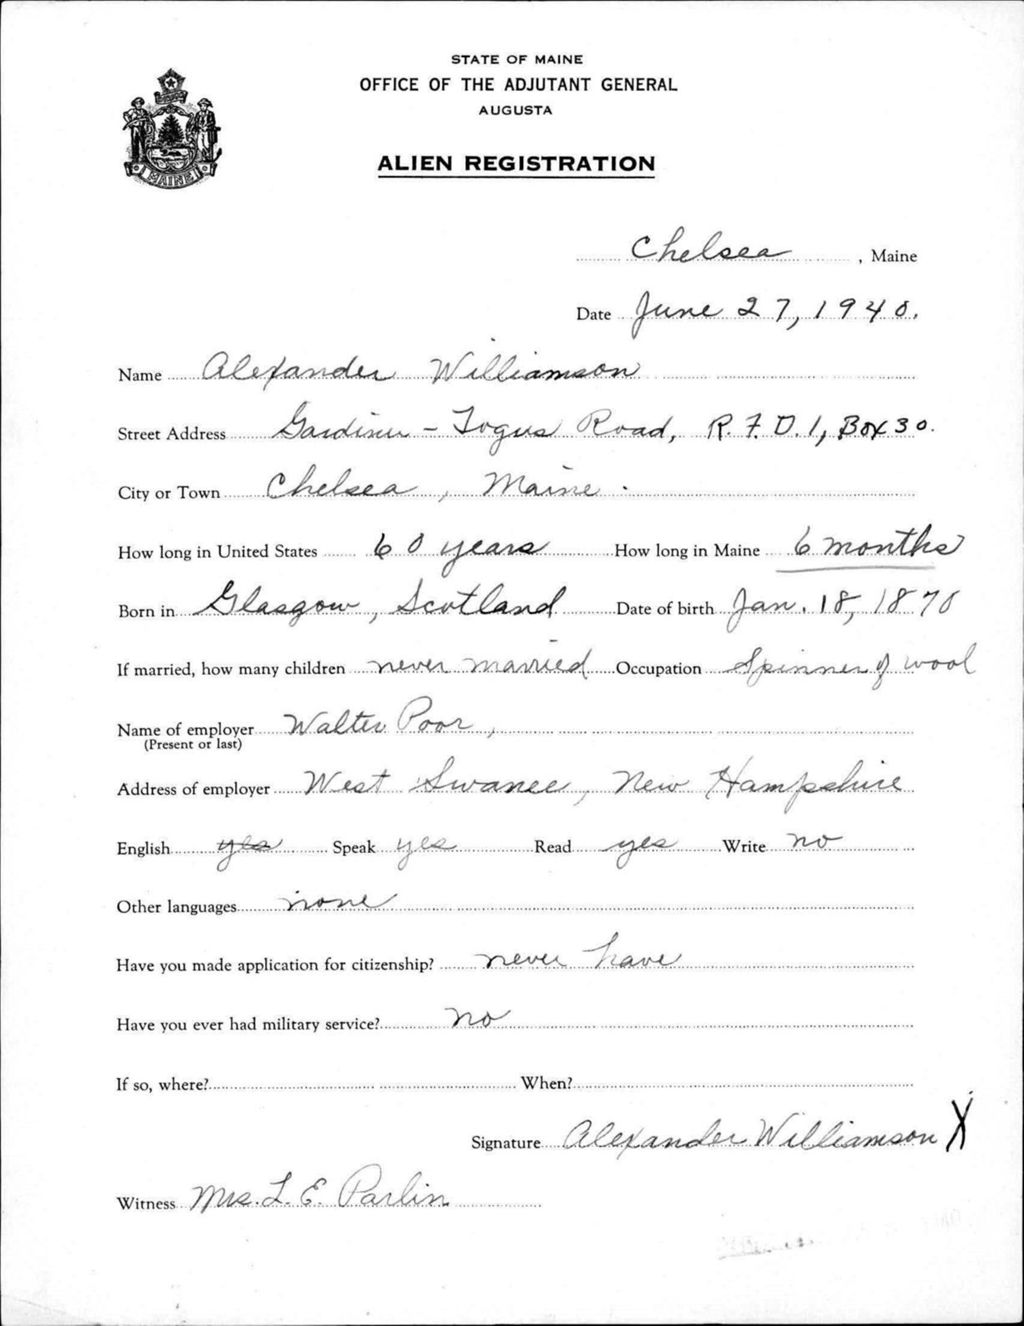 STATE OF MAINE
OFFICE OF THE ADJUTANT GENERAL
AUGUSTA
ALIEN REGISTRATION
MAINE
Chelsea, Maine
Date June 27, 1940.
Name Alexander Williamson
Street Address Gardiner - Togus Road, R.F.D. 1, Box 30.
City or Town Chelsea, Maine.
How long in United States 60 years How long in Maine 6 months
Born in Glasgow, Scotland Date of birth Jan. 18, 1870
If married, how many children never married Occupation Spinner of wool
Name of employer Walter Poor,
(Present or last)
Address of employer West Swanee, New Hampshire
English yes Speak yes Read yes Write no
Other languages none
Have you made application for citizenship? never have
Have you ever had military service? no
If so, where? When?
Signature Alexander Williamson X
Witness Mrs. L. E. Parlin